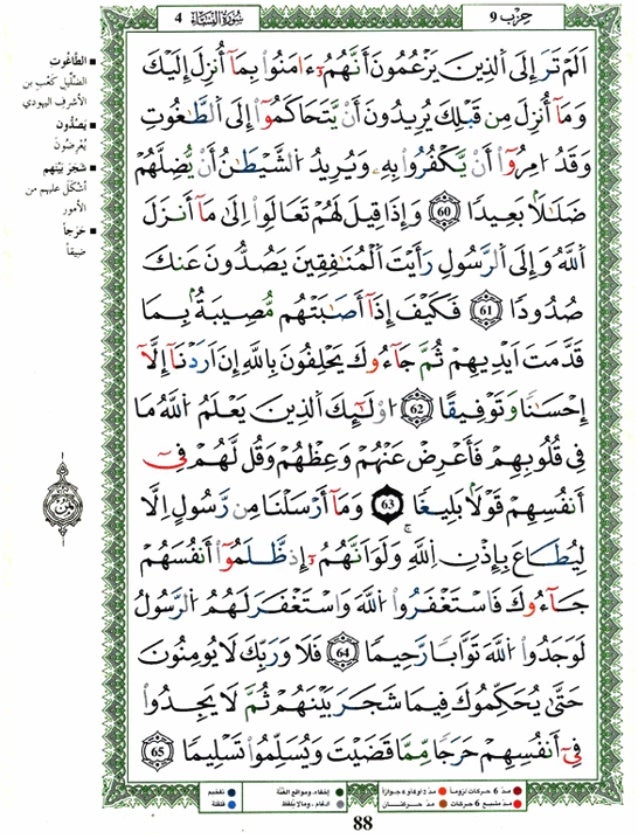 حِزْب 9
سُورَةُ النِّسَاء 4
اَلَمْ تَرَ إِلَى اَلذِينَ يَزْعُمُونَ أَنَّهُمُۥٓ ءَامَنُوا۟ بِمَآ أُنزِلَ إِلَيْكَ
وَمَآ أُنزِلَ مِن قَبْلِكَ يُرِيدُونَ أَنْ يَّتَحَاكَمُوٓا۟ إِلَى اَلطَّٰغُوتِ
وَقَدُ ا۟مِرُوٓا۟ أَنْ يَّكْفُرُوا۟ بِهِۦ وَيُرِيدُ اُلشَّيْطَٰنُ أَنْ يُّضِلَّهُمْ
ضَلَٰلَاۢ بَعِيدًا 60 وَإِذَا قِيلَ لَهُمْ تَعَالَوِا۟ اِلَىٰ مَآ أَنزَلَ
اَللَّهُ وَإِلَى اَلرَّسُولِ رَأَيْتَ اَلْمُنَٰفِقِينَ يَصُدُّونَ عَنكَ
صُدُودًا 61 فَكَيْفَ إِذَآ أَصَٰبَتْهُم مُّصِيبَةُۢ بِمَا
قَدَّمَتَ اَيْدِيهِمْ ثُمَّ جَآءُوكَ يَحْلِفُونَ بِاللَّهِ إِنَ اَرَدْنَآ إِلَّآ
إِحْسَٰنًا وَتَوْفِيقًا 62 ا۟وْلَٰٓئِكَ اَلذِينَ يَعْلَمُ اُللَّهُ مَا
فِي قُلُوبِهِمْ فَأَعْرِضْ عَنْهُمْ وَعِظْهُمْ وَقُل لَّهُمْ فِيٓ
أَنفُسِهِمْ قَوْلَاۢ بَلِيغًا 63 وَمَآ أَرْسَلْنَا مِن رَّسُولٍ اِلَّا
لِيُطَاعَ بِإِذْنِ اِللَّهِ وَلَوَ اَنَّهُمُۥٓ إِذ ظَّلَمُوٓا۟ أَنفُسَهُمْ
جَآءُوكَ فَاسْتَغْفَرُوا۟ اُللَّهَ وَاسْتَغْفَرَ لَهُمُ اُلرَّسُولُ
لَوَجَدُوا۟ اُللَّهَ تَوَّابًا رَّحِيمًا 64 فَلَا وَرَبِّكَ لَا يُومِنُونَ
حَتَّىٰ يُحَكِّمُوكَ فِيمَا شَجَرَ بَيْنَهُمْ ثُمَّ لَا يَجِدُوا۟
فِيٓ أَنفُسِهِمْ حَرَجًا مِّمَّا قَضَيْتَ وَيُسَلِّمُوا۟ تَسْلِيمًا 65
■ الطَّاغُوتِ
الضِّلِّيلِ كَعْبِ بن
الأشرفِ اليهودي
■ يَصُدُّون
يُعْرِضُونَ
■ شَجَرَ بَيْنَهم
أشْكَلَ عليهم من
الأمور
■ حَرَجاً
ضيقاً
ثمن
مدّ 6 حركات لزوماً
مدّ 2 أو 4 أو 6 جوازاً
إخفاء، ومواقع الغُنَّة
تفخيم
مدّ مشبع 6 حركات
مدّ حركتان
ادغام، وما لا يُلفَظ
قلقلة
88